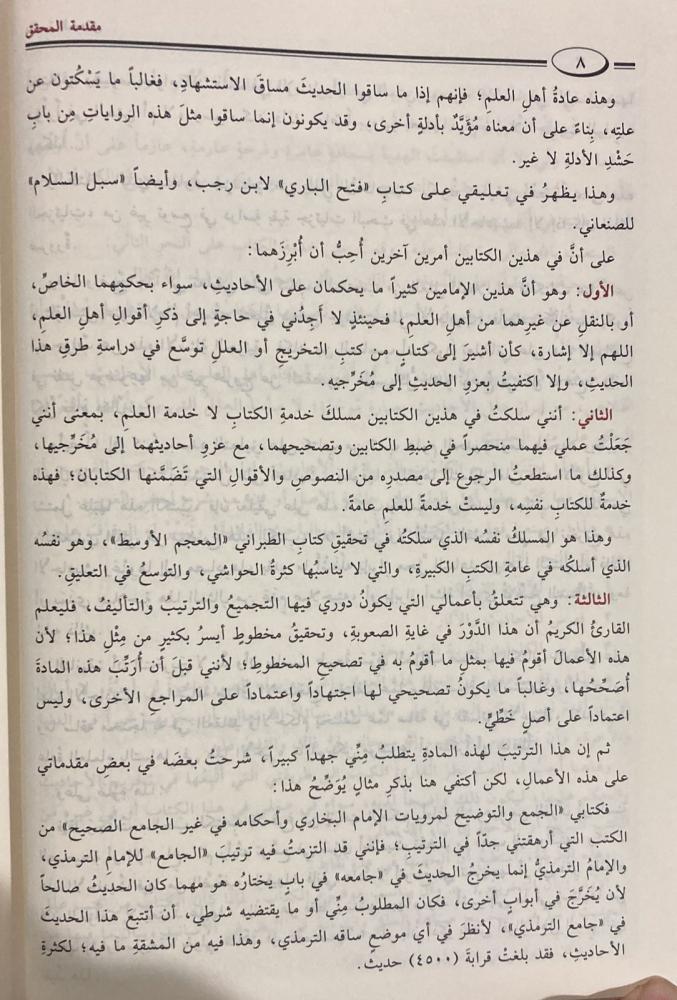 مقدمة المحقق
٨
وهذه عادةُ أهلِ العلم؛ فإنهم إذا ما ساقوا الحديثَ مساقَ الاستشهادِ، فغالباً ما يَسْكُتون عن
علتِه، بِناءً على أن معناه مُؤَيَّدٌ بأدلةٍ أخرى، وقد يكونون إنما ساقوا مثلَ هذه الرواياتِ مِن بابِ
حَشْدِ الأدلةِ لا غير.
وهذا يظهرُ في تعليقي على كتابِ «فتح الباري» لابن رجب، وأيضاً «سبل السلام»
للصنعاني.
على أنَّ في هذين الكتابين أمرين آخرين أُحِبُّ أن أُبْرِزَهما:
الأول: وهو أنَّ هذين الإمامين كثيراً ما يحكمان على الأحاديثِ، سواء بحكمِهما الخاصِّ،
أو بالنقلِ عن غيرِهما من أهلِ العلمِ، فحينئذٍ لا أَجِدُني في حاجةٍ إلى ذكرِ أقوالِ أهلِ العلمِ،
اللهم إلا إشارة، كأن أشيرَ إلى كتابٍ من كتبِ التخريجِ أو العللِ توسَّع في دراسةِ طرقِ هذا
الحديثِ، وإلا اكتفيتُ بعزوِ الحديثِ إلى مُخَرِّجيه.
الثاني: أنني سلكتُ في هذين الكتابين مسلكَ خدمةِ الكتابِ لا خدمة العلمِ، بمعنى أنني
جَعَلْتُ عملي فيهما منحصراً في ضبطِ الكتابين وتصحيحهما، مع عزوِ أحاديثهما إلى مُخَرِّجيها،
وكذلك ما استطعتُ الرجوع إلى مصدرِه من النصوصِ والأقوالِ التي تَضَمَّنها الكتابان؛ فهذه
خدمةٌ للكتابِ نفسِه، وليستْ خدمةً للعلمِ عامةً.
وهذا هو المسلكُ نفسُه الذي سلكتُه في تحقيقِ كتابِ الطبراني «المعجم الأوسط»، وهو نفسُه
الذي أسلكُه في عامةِ الكتبِ الكبيرةِ، والتي لا يناسبُها كثرةُ الحواشي، والتوسعُ في التعليقِ.
الثالثة: وهي تتعلقُ بأعمالي التي يكونُ دوري فيها التجميعُ والترتيبُ والتأليفُ، فليعلم
القارئُ الكريمُ أن هذا الدَّوْرَ في غايةِ الصعوبةِ، وتحقيقُ مخطوطٍ أيسرُ بكثيرٍ من مِثْلِ هذا؛ لأن
هذه الأعمالَ أقومُ فيها بمثلِ ما أقومُ به في تصحيحِ المخطوطِ؛ لأنني قبلَ أن أُرَتِّبَ هذه المادةَ
أُصَحِّحُها، وغالباً ما يكونُ تصحيحي لها اجتهاداً واعتماداً على المراجعِ الأخرى، وليس
اعتماداً على أصلٍ خَطِّيٍّ.
ثم إن هذا الترتيبَ لهذه المادةِ يتطلبُ مِنِّي جهداً كبيراً، شرحتُ بعضَه في بعضِ مقدماتي
على هذه الأعمالِ، لكن أكتفي هنا بذكرِ مثالٍ يُوَضِّحُ هذا:
فكتابي «الجمع والتوضيح لمرويات الإمام البخاري وأحكامه في غير الجامع الصحيح» من
الكتب التي أرهقتني جدّاً في الترتيبِ؛ فإنني قد التزمتُ فيه ترتيبَ «الجامع» للإمامِ الترمذي،
والإمامُ الترمذيُّ إنما يخرجُ الحديثَ في «جامعه» في بابٍ يختارُه هو مهما كان الحديثُ صالحاً
لأن يُخَرَّجَ في أبوابٍ أخرى، فكان المطلوبُ مِنِّي أو ما يقتضيه شرطي، أن أتتبعَ هذا الحديثَ
في «جامع الترمذي»، لأنظرَ في أي موضعٍ ساقه الترمذي، وهذا فيه من المشقةِ ما فيه؛ لكثرةِ
الأحاديثِ، فقد بلغتْ قرابةَ (٤٥٠٠) حديث.